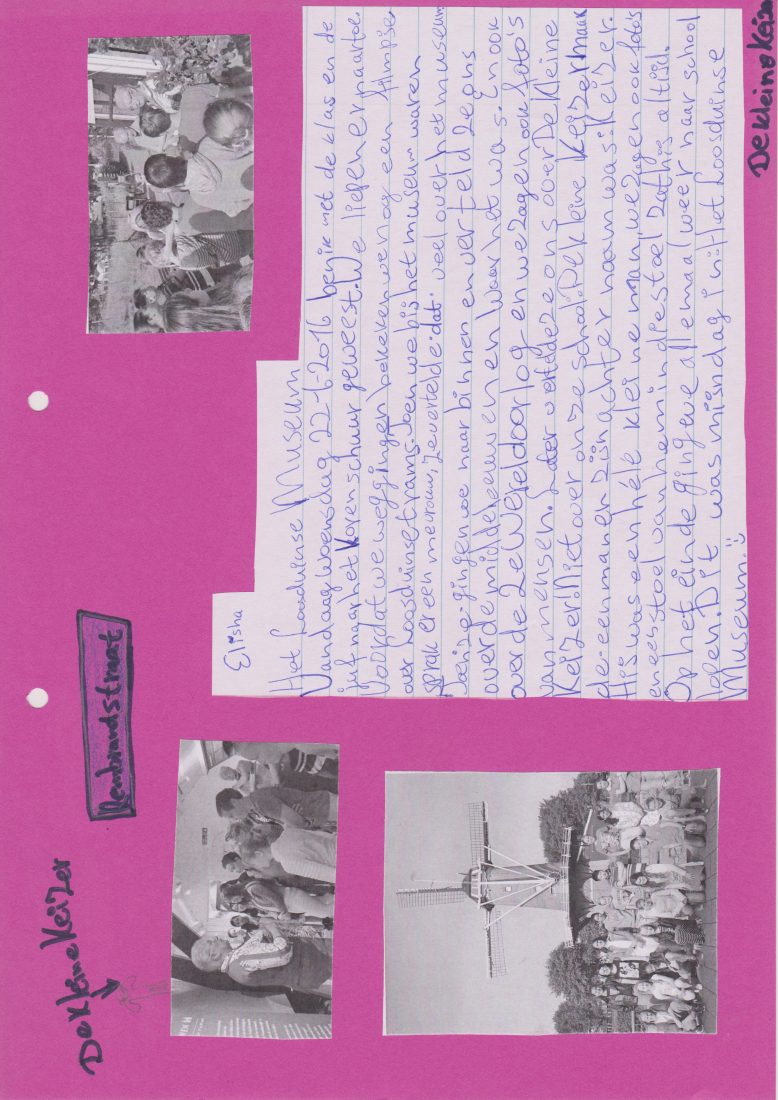 De kleine Keizer
Rembrandstraat
Elisha
Het Loosduinse Museum
Vandaag woensdag 22-6-2016 ben ik met de klas en de
juf naar het Korenschuur geweest. We liepen er naartoe.
Voordat we weggingen bekeken we nog een filmpje
over Loosduinse trams. Toen we bij het museum waren
sprak er een mevrouw, ze vertelde dat veel over het museum
Toen ze gingen we naar binnen en vertelde ze ons
over de middeleeuwen en waar het was. En ook
over de 2e Wereldoorlog en we zagen ook foto's
van mensen. Later vertelde ze ons over De kleine
Keizer: Niet over onze school: De kleine Keizer maar
de een man en zijn achter naam was: Keizer.
Hij was een hele kleine man, we zagen ook foto's
en een stoel van hem in die stoel zat hij altijd.
Op het einde gingen we allemaal weer naar school
lopen. Dit was mijn dag in: Het Loosduinse
Museum.
De kleine Keizer